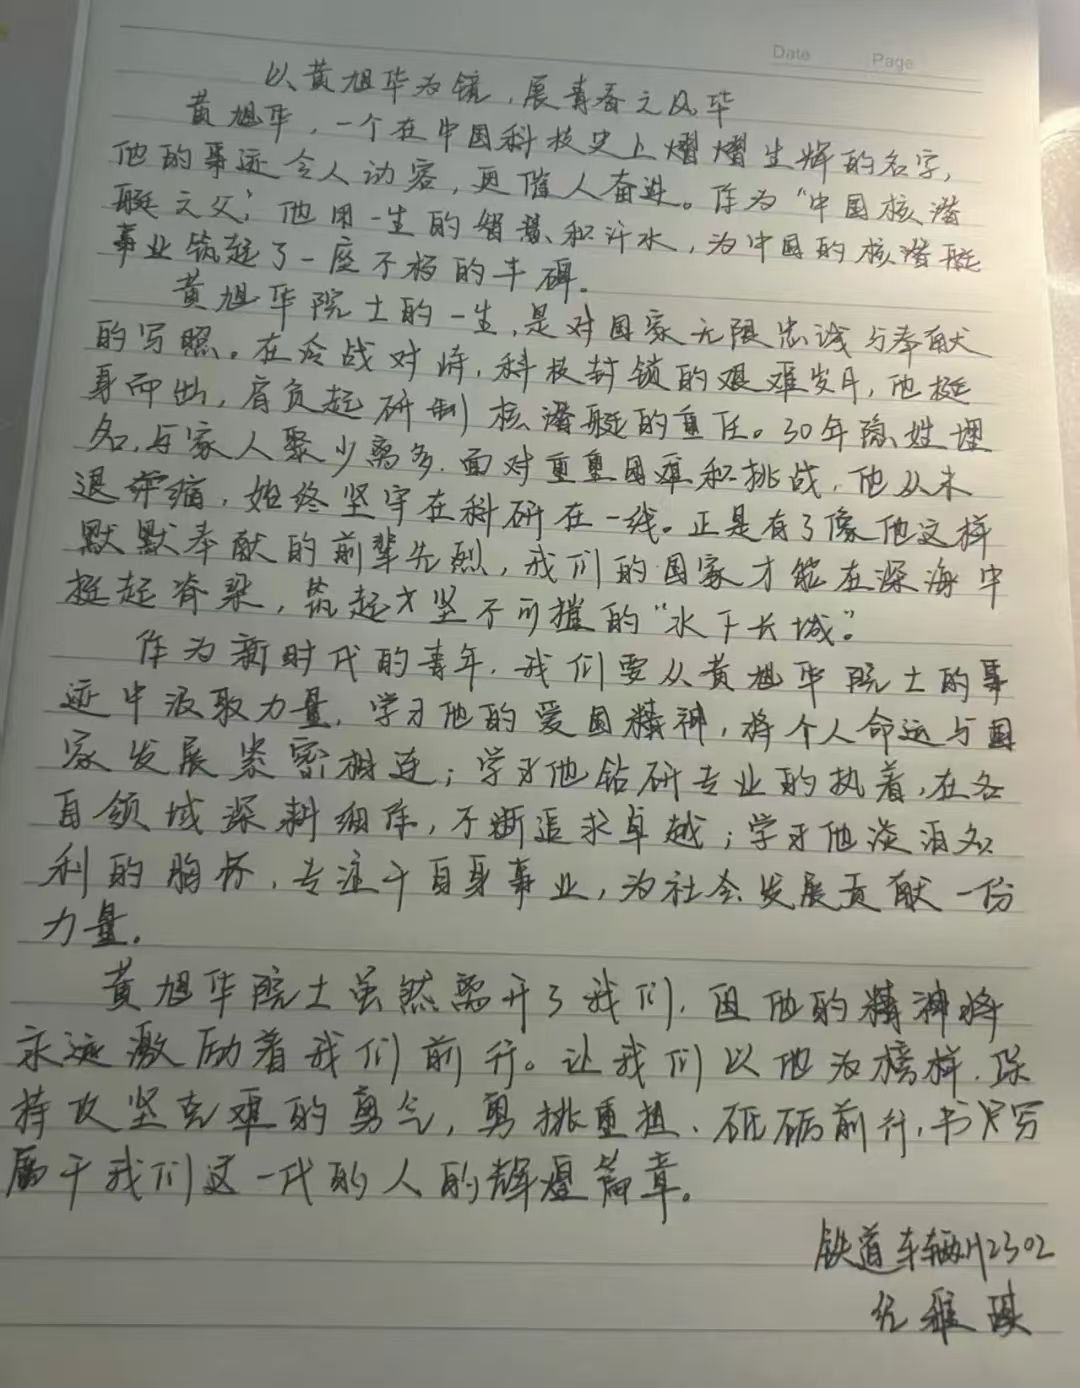 Date Page
以黄旭华为镜,展青春之风华
黄旭华,一个在中国科技史上熠熠生辉的名字,
他的事迹令人动容,更催人奋进。作为“中国核潜
艇之父”,他用一生的智慧和汗水,为中国的核潜艇
事业筑起了一座不朽的丰碑。
黄旭华院士的一生,是对国家无限忠诚与奉献
的写照。在冷战对峙,科技封锁的艰难岁月,他挺
身而出,肩负起研制核潜艇的重任。30年隐姓埋
名,与家人聚少离多.面对重重困难和挑战,他从未
退缩,始终坚守在科研在一线。正是有了像他这样
默默奉献的前辈先烈,我们的国家才能在深海中
挺起脊梁,筑起坚不可摧的“水下长城”。
作为新时代的青年,我们要从黄旭华院士的事
迹中汲取力量,学习他的爱国精神,将个人命运与国
家发展紧密相连;学习他钻研专业的执着,在各
自领域深耕细作,不断追求卓越;学习他淡泊名
利的胸怀,专注于自身事业,为社会发展贡献一份
力量.
黄旭华院士虽然离开了我们,但他的精神将
永远激励着我们前行。让我们以他为榜样,保
持攻坚克难的勇气,勇挑重担、砥砺前行,书写
属于我们这一代的人的辉煌篇章。
铁道车辆2302
雅琪